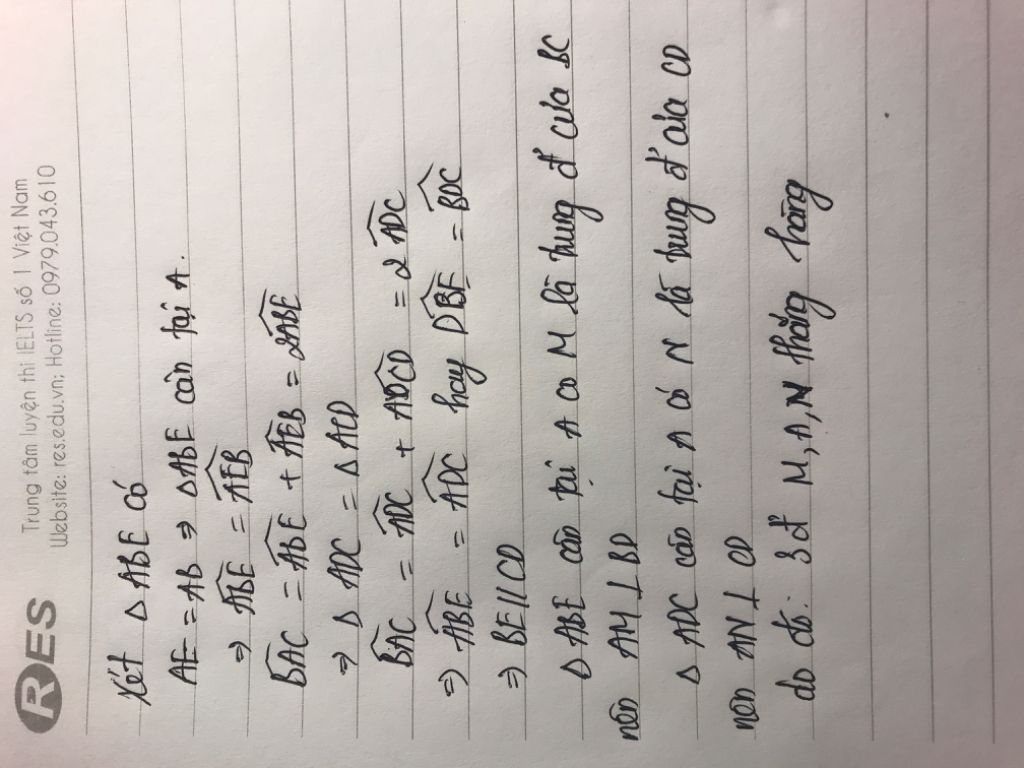 RES
Trung tâm luyện thi IELTS số 1 Việt Nam
Website: res.edu.vn; Hotline: 0979.043.610
Xét Δ ABE có
AE = AB ⇒ ΔABE cân tại A.
⇒ \widehat{ABE} = \widehat{AEB}
\widehat{BAC} = \widehat{ABE} + \widehat{AEB} = 2\widehat{ABE}
⇒ Δ ADC = Δ ACD
\widehat{BAC} = \widehat{ADC} + \widehat{ADCD} = 2 \widehat{ADC}
⇒ \widehat{ABE} = \widehat{ADC} hay \widehat{DBE} = \widehat{BDC}
⇒ BE // CD
Δ ABE cân tại A co M là trung đ' của BC
nên AM ⊥ BD
Δ ADC cân tại A có N là trung đ' của CD
nên AN ⊥ CD
do đó: 3 đ' M, A, N thẳng hàng